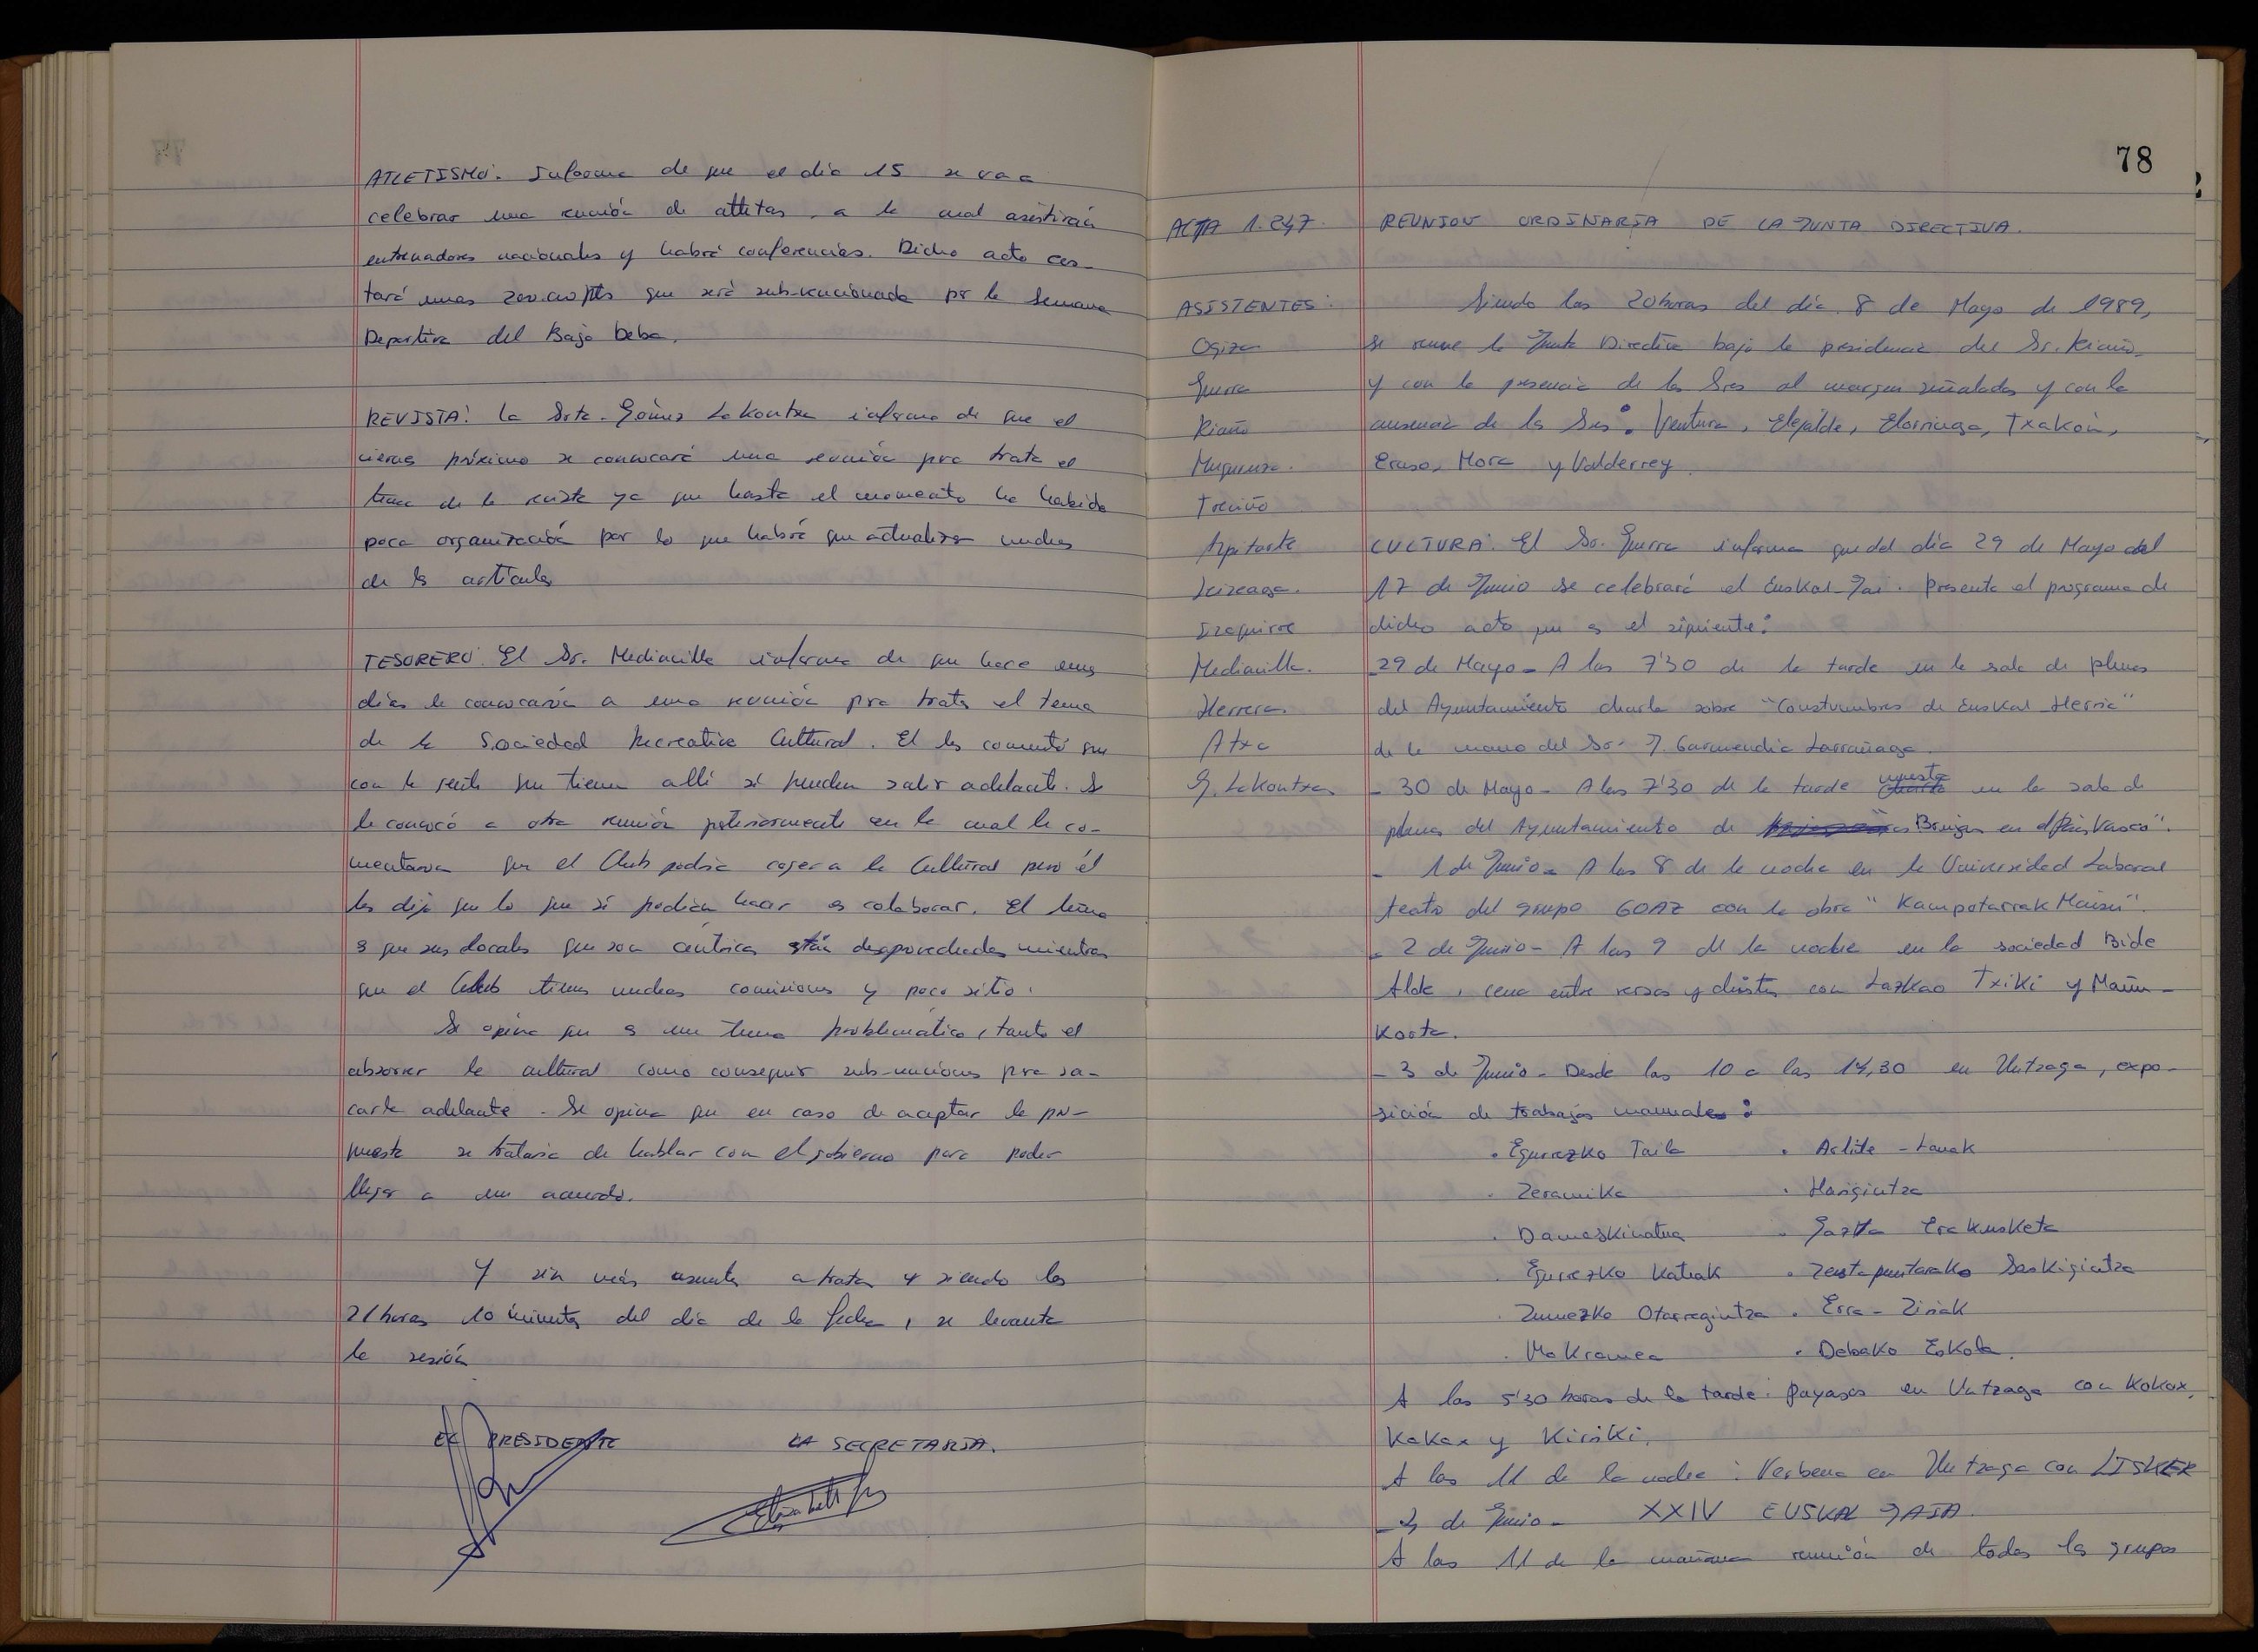 ATLETISMO: Informa de que el día 15 se va a
celebrar una reunión de atletas, a la cual asistirán
entrenadores nacionales y habrá conferencias. Dicho acto cos-
tará unas 200.000 pts que será subvencionada por la Semana
Deportiva del Bajo Deba.
REVISTA: La Srta. Gómez Lakontxa informa de que el
viernes próximo se convocará una reunión para tratar el
tema de la revista ya que hasta el momento ha habido
poca organización por lo que habrá que actualizar muchos
de los artículos
TESORERO: El Sr. Mediavilla informa de que hace unos
días le convocaron a una reunión para tratar el tema
de la Sociedad Recreativa Cultural. El les comentó que
con la gente que tienen allí sí pueden salir adelante. Se
le convocó a otra reunión posteriormente en la cual le co-
mentaron que el Club podría coger a la Cultural pero él
les dijo que lo que sí podían hacer es colaborar. El tema
es que sus locales que son céntricos están desaprovechados mientras
que el Club tienes muchas comisiones y poco sitio.
Se opina que es un tema problemático, tanto el
absorver la cultural como conseguir subvenciones para sa-
carla adelante. Se opina que en caso de aceptar la pro-
puesta se trataría de hablar con el gobierno para poder
llegar a un acuerdo.
Y sin más asuntos a tratar y siendo las
21 horas 10 minutos del día de la fecha, se levanta
la sesión
EL PRESIDENTE LA SECRETARIA.
78
ACTA 1.247. REUNION ORDINARIA DE LA JUNTA DIRECTIVA.
ASISTENTES: Siendo las 20 horas del día 8 de Mayo de 1989,
Ogiza se reune la Junta Directiva bajo la presidencia del Sr. Riaño
Guerra y con la presencia de los Sres al margen señalados y con la
Riaño ausencia de los Sres: Ventura, Elejalde, Elorriaga, Txakón,
Muguruza. Eraso, Mora y Valderrey.
Treviño
Azpitarte CULTURA: El Sr. Guerra informa que del día 29 de Mayo del
Leizeaga. 17 de Junio se celebrará el Euskal-Jai. Presenta el programa de
Izaguirre dicho acto que es el siguiente:
Mediavilla. - 29 de Mayo - A las 7'30 de la tarde en la sala de plenos
Herrera. del Ayuntamiento charla sobre "Constumbres de Euskal-Herria"
Atxa de la mano del Sr. J. Garmendia Larrañaga.
G. Lakontxa - 30 de Mayo - A las 7'30 de la tarde muestra en la sala de
plenos del Ayuntamiento de Brujas en el Pais Vasco".
- 1 de Junio - A las 8 de la noche en la Universidad Laboral
teatro del grupo GOAZ con la obra "Kampotarrak Maisu".
- 2 de Junio - A las 9 de la noche en la sociedad Bide
Alde, cena entre versos y chistes con Lazkao Txiki y Mañu-
Kosta.
- 3 de Junio - Desde las 10 a las 14,30 en Untzaga, expo-
sición de trabajos manuales:
. Egurrezko Taila . Aslite - Lanak
. Zeramika . Harigintza
. Damaskinatua . Gazta Erakusketa
. Egurrezko Katuak . Zestapuntarako Saskigintza
. Zumezko Otarregintza . Erra - Ziriak
. Makramea . Debako Eskola.
A las 5'30 horas de la tarde: payasos en Untzaga con Kokox,
Kakax y Kiriki.
A las 11 de la noche: Verbena en Untzaga con LISKER
- 4 de Junio - XXIV EUSKAL JAIA.
A las 11 de la mañana reunión de todos los grupos